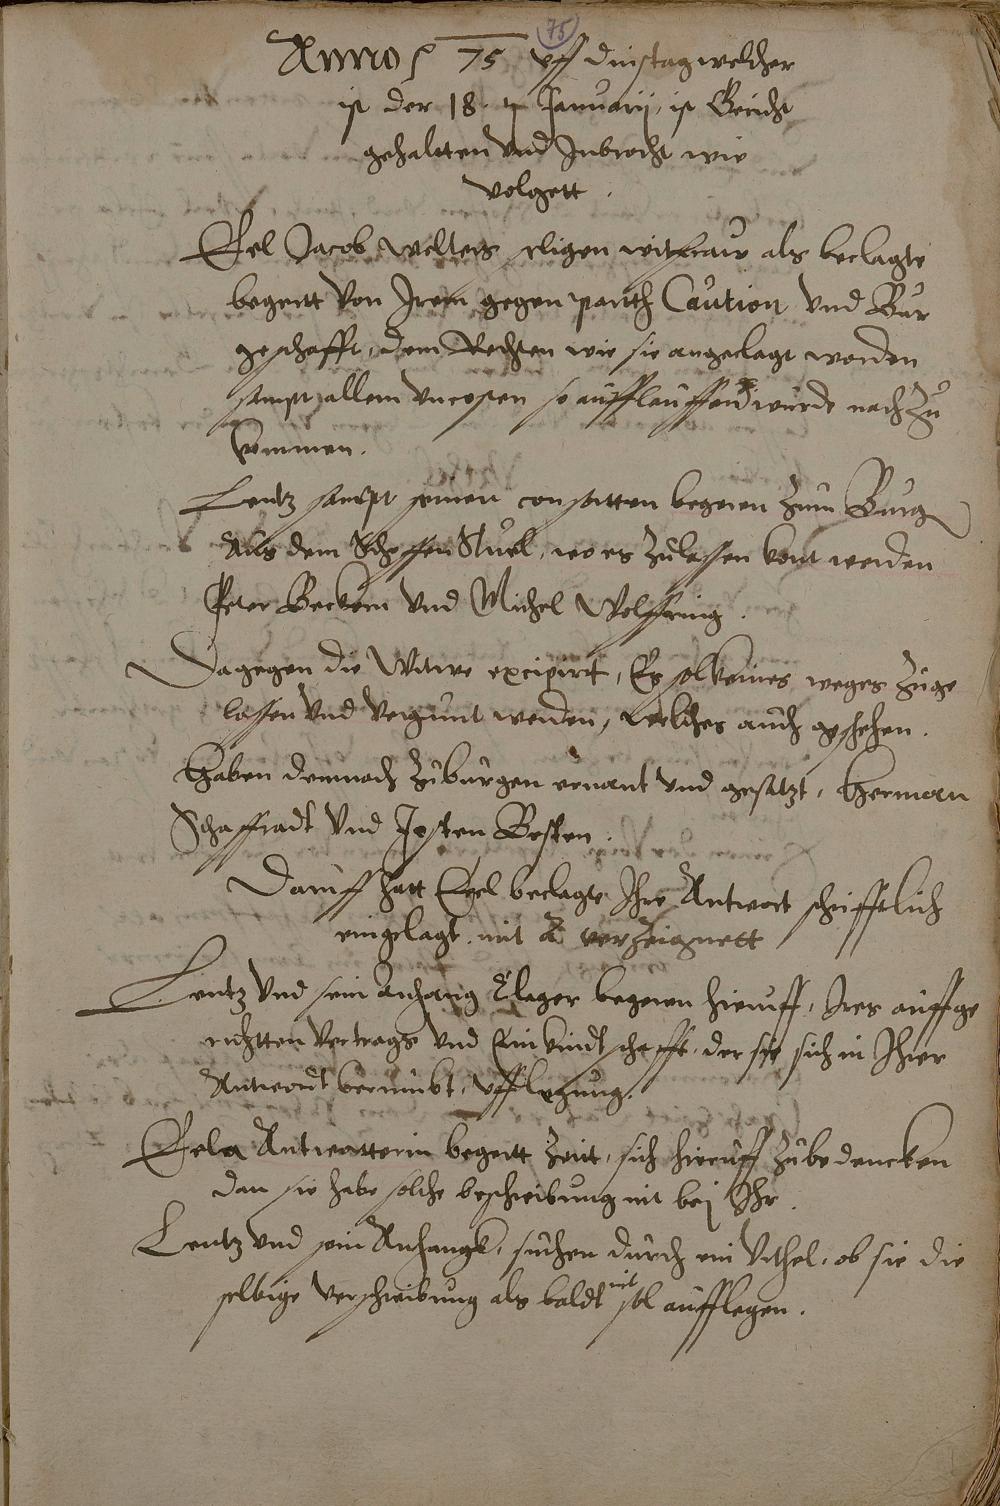 75
Anno 75 uff dinstag welcher
ist der 18. Januarii, ist Gericht
gehaltten und Inbrocht wie
volgett.
Eel Jacob Welters seligen witfrauw als beclagte
begertt von Irem gegen parth Caution und Bur
geschafft, dem Rechten wie sie angeclagt worden
sampt allem uncosten so aufflauffen würde nach zu
kommen.
Lentz sampt seinen consorten begeren zum Burg
Aus dem Scheffen Stuel, wo es zulassen kont werden
Peter Beckern und Michel Wolffring.
Dagegen die Witwe excipirt, Es sol keines weges zuge
lassen und vergunt werden, welches auch geschehen.
Haben demnach zu burgen ernant und gesatzt, Herman
Schaffradt und Josten Besten.
Daruff hatt Eel beclagte Ihre Antwort schrifftlich
eingelagt mit A verzeignett
Lentz und sein anhang Cleger begeren hieruff, Ires auffge
richtten vertrags und Einkindtschafft, der sie sich in Ihrer
Antwordt berumbt, ufflegung.
Eela Antwortterin begertt Zeit, sich hieruff zu bedencken
dan sie habe solche beschreibung nit bei Ihr.
Lentz und sein Anhangk, suchen durch ein Urthel, ob sie die
selbige verschreibung als baldt nit sol aufflegen.